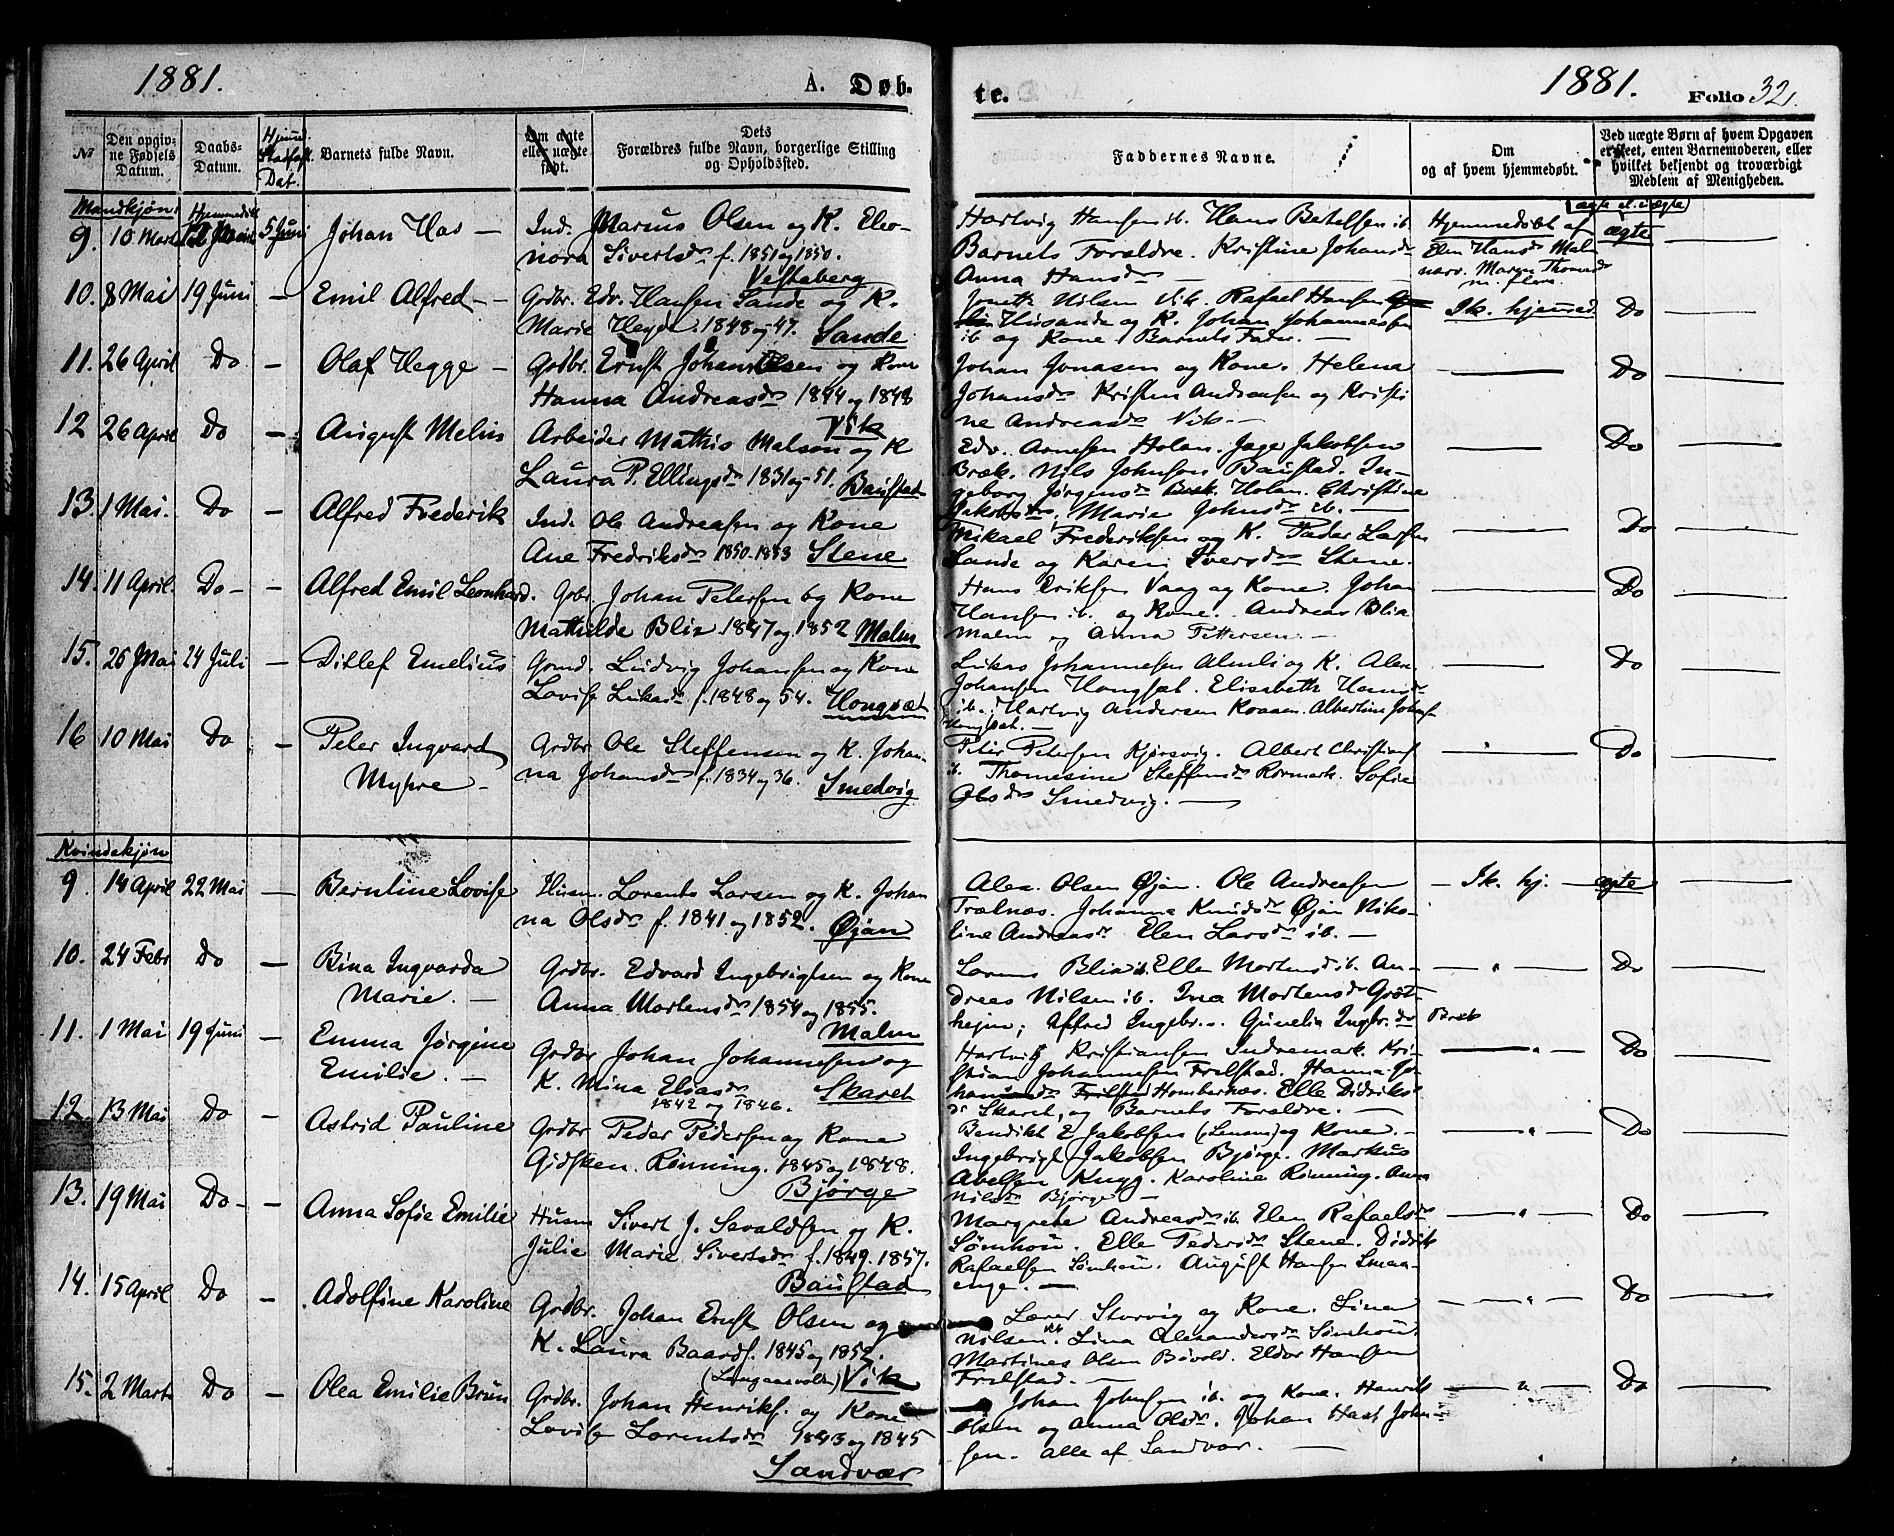 1881.
A. Døb-
te.
1881.
Folio 32.
№
Den opgiv-
ne Fødsels
Datum.
Daabs-
Datum.
Hjemmed.
Stadfæst.
Dat.
Barnets fulde Navn.
Om ægte
eller uægte
født.
Dets
Forældres fulde Navn, borgerlige Stilling
og Opholdssted.
Faddernes Navne.
Om
og af hvem hjemmedøbt.
Ved uægte Børn af hvem Opgaven
er skeet, enten Barnemoderen, eller
hvilket bekjendt og troværdigt
Medlem af Menigheden.
Mandkjøn
ægte el. uægte
9. 10 Marts Hjemmedøbt 5 Juni Johan Has - Ind. Marius Olsen og K. Eleo-
nora Sivertsdr f. 1851 og 1850.
Vestaberg
Hartvig Hansen ib. Hans Betelsen ib.
Barnets Forældre. Kristine Johansdr
Anna Hansdr
Hjemmedøbt af
Elen Hansdr Mal-
narv. Maren Thomasdr
m. flere.
ægte
10. 8 Mai 19 Juni - Emil Alfred - Grdbr. Edv. Hansen Sande og K.
Marie Hegge. 1848 og 47. Sande
Jonette Nilsen Vik. Rafael Hansen
Husande og K. Johan Johannessen
ib og Kone. Barnets Fader. -
Ik. hjemmed. Do
11. 26 April Do - Olaf Hegge - Grdbr. Ernst Johan Olsen og Kone
Hanna Andreasdr 1844 og 1848
Vik
Johan Jonasen og Kone. Helena
Johansdr Kristen Andreasen og Kristi
ne Andreasdr Vik. -
Do
12 26 April Do - August Melius Arbeider Mathis Malson og K
Laura P. Ellingsdr 1831 og - 51. Baustad
Edv. Arnesen Holan. Jage Jakobsen
Bræk. Nils Johnsen Baustad. In-
geborg Jørgensdr Holan. Christine
Jakobsdr, Marie Johnsdr ib. -
Do
13. 1 Mai. Do - Alfred Frederik Ind. Ole Andreasen og Kone
Ane Fredriksdr 1850. 1853 Stene
Mikael Frederiksen og K. Peder Larsen
Sande og Karen Iversdr Stene.
Do
14. 11 April. Do - - Alfred Emil Leonhard. Grbr. Johan Petersen og Kone
Mathilde Blix 1847 og 1852 Malm
Hans Eriksen Vaag og Kone. Johan
Hansen ib. og Kone. Andreas Blix
Malm og Anna Pettersen. -
Do
15. 26 Mai 24 Juli - Ditlef Emelius Grmd. Ludvig Johansen og Kone
Lovise Lukasdr f. 1848 og 54. Hongsæt
Lukas Johannesen Almli og K. Alex.
Johansen Hongsæt. Elisabeth Hansdr
ib. Hartvig Andersen Roaaen. Albertine Johs.
Hongsæt. -
Do
16 10 Mai Do - Peter Ingvard
Myhre - Grdbr Ole Steffensen og K. Johan-
na Johansdr f. 1834 og 36. Smedvig
Peter Petersen Kjørsvig. Albert Christians.
ib. Thomesine Steffensdr Rørmark. Sofie
Olsdr Smedvig. -
Do
Kvindekjøn
9. 14 April 22 Mai - Berntine Lovise Husm. Lorents Larsen og K. Johan
na Olsdr f. 1841 og 1852. Øjan
Alex. Olsen Øjan. Ole Andreasen
Trælnæs. Johanna Knudsdr Øjan Niko-
line Andreasdr Elen Larsdr ib. -
- Ik. hj. - ægte
10. 24 Febr Do - Bina Ingvarda
Marie. - Grdbr. Edvard Ingebrigtsen og Kone
Anna Mortensdr 1854 og 1855.
Malm
Lorens Blix ib. Elle Mortensdr ib. An-
dreas Nilsen ib. Ina Mortensdr Grøt-
hejm; Alfred Ingebr. Gunelia Ingbr.dr Bræk
Do
11. 1 Mai 19 Juni - Emma Jørgine
Emilie. - Grdbr Johan Johannesen og
K. Nina Eliasdr Skaret
1842 og 1846.
Hartvig Kristiansen Indremark. Kri-
stian Johannesen Frelstad. Hanna Jo-
hansdr Frelstad Hombornæs. Elle Didriks
dr Skaret, og Barnets Forældre. -
Do
12. 13 Mai Do - Astrid Pauline Grdbr Peder Pedersen og Kone
Gidsken Rønning. 1845 og 1848.
Bjørge
Bendikt E Jakobsen (Lenem) og Kone. -
Ingebrigt Jakobsen Bjørge. Markus
Abelsen Knyg. Karoline Rønning. Anna
Nilsdr Bjørge -
Do
13. 19 Mai Do - - Anna Sofie Emilie Husm Sivert J. Sevaldsen og K.
Julie Marie Sivertsdr f. 1849. 1857.
Baustad
Margrete Andreasdr ib. Elen Rafaelsdr
Sømhou. Elle Pedersdr Stene. Didrik
Rafaelsen Sømhou. August Hansen Smaa-
enge. -
Do
14. 15 April Do - Adolfine Karoline Grdbr. Johan Ernst Olsen og
K. Laura Baards. 1845 og 1852.
(Langaasvolden) Vik
Lorer Storvig og Kone. Lina
Nilsen Vik. Lina Aleksandersdr Sømhou.
Martines Olsen Bøvold. Eldor Hansen
Frelstad. -
Do
15. 2 Marts Do - Olea Emilie Brun Grdbr. Johan Henriks. og Kone
Lovise Lorentsdr 1843 og 1845
Sandvær
Johan Johnsen ib. og Kone. Henrik
Olsen og Anna Olsdr. Johan Hast John-
sen. alle af Sandvær. -
Do